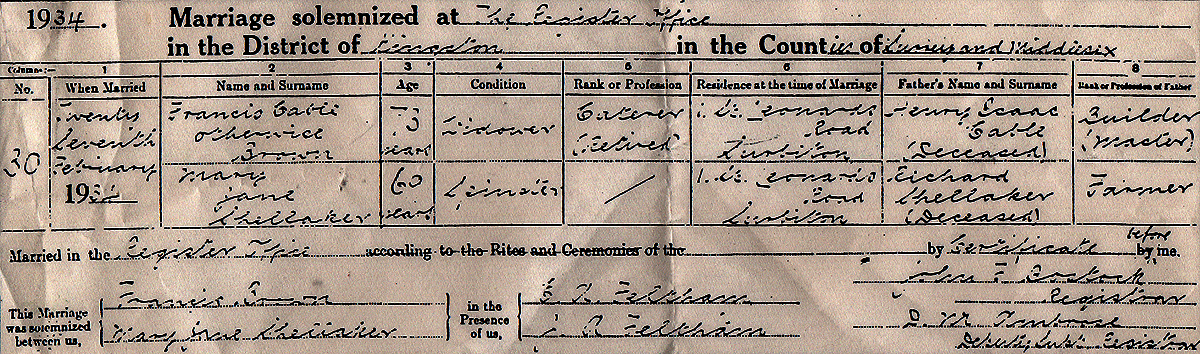 1934. Marriage solemnized at The Register Office
in the District of Kingston in the Counties of Surrey and Middlesex
Columns:— 1 2 3 4 5 6 7 8
No. When Married Name and Surname Age Condition Rank or Profession Residence at the time of Marriage Father's Name and Surname Rank or Profession of Father
30
Twenty
Seventh
February
1934
Francis Cable
otherwise
Brown
73
years
Widower
Caterer
(Retired)
1. St. Leonards
Road
Surbiton
Henry Isaac
Cable
(Deceased)
Builder
(Master)
Mary
Jane
Shellaker
60
years
Spinster
/
1. St. Leonards
Road
Surbiton
Richard
Shellaker
(Deceased)
Farmer
Married in the Register Office according to the Rites and Ceremonies of the by Certificate before by me.
This Marriage
was solemnized
between us,
Francis Brown
Mary Jane Shellaker
in the
Presence
of us,
R. Feltham
R Feltham
John F Bostock
Registrar
Ambrose
Deputy Supt Registrar